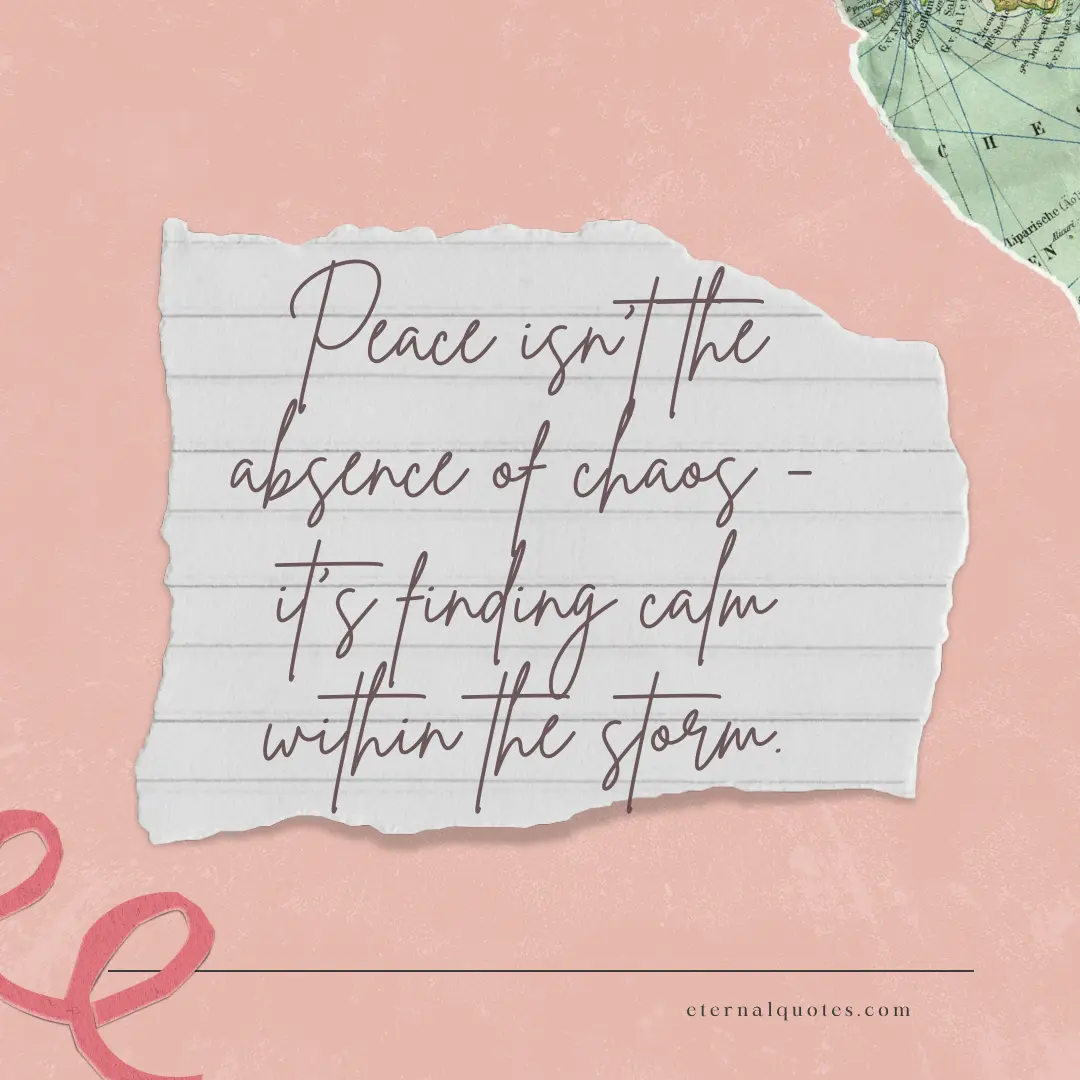 C H E
Liparische (Äol
E N
Peace isn't the
absence of chaos -
it's finding calm
within the storm.
eternalquotes.com